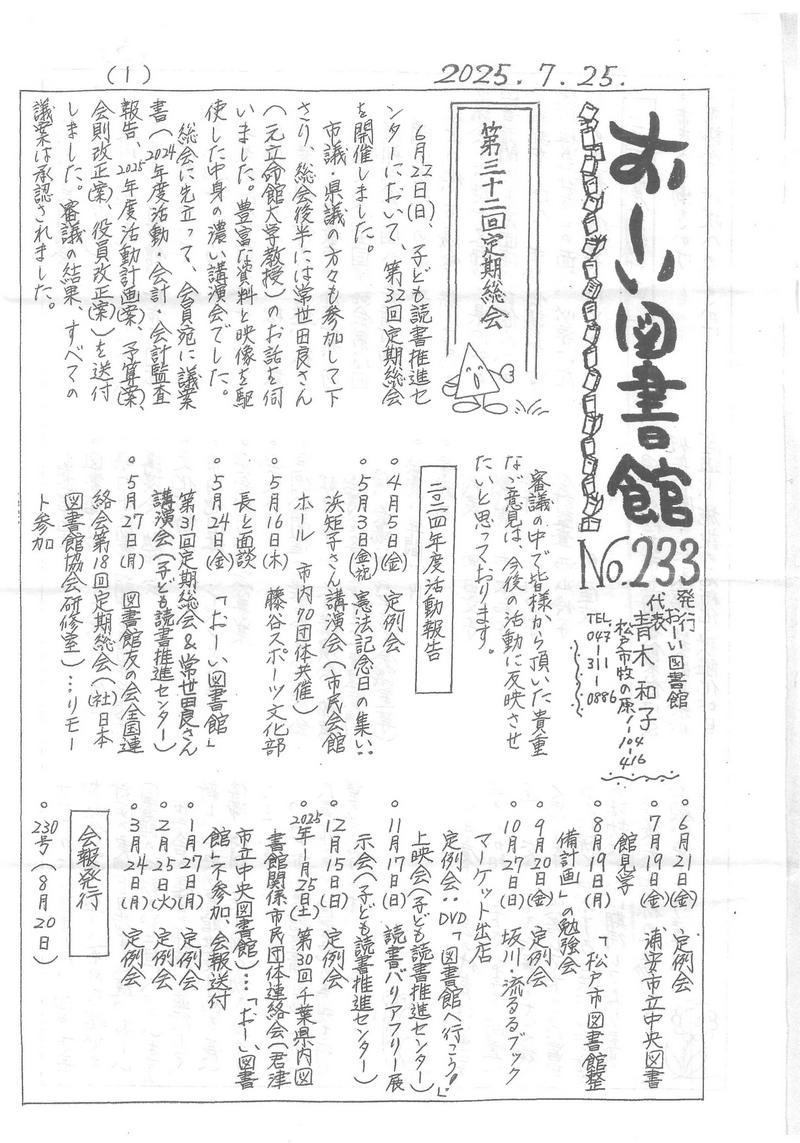 (1)
2025.7.25.
おーい図書館
No.233
発行
おーい図書館
代表
青木 和子
松戸市牧の原1-104-416
TEL
047-311-0886
第三十二回定期総会
6月22日(日)、子ども読書推進セ
ンターにおいて、第32回定期総会
を開催しました。
市議・県議の方々も参加して下
さり、総会後半には常世田良さん
(元立命館大学教授)のお話を伺
いました。豊富な資料と映像を駆
使した中身の濃い講演会でした。
総会に先立って、会員宛に議案
書(2024年度活動・会計・会計監査
報告、2025年度活動計画(案)、予算(案)、
会則改正(案)、役員改正(案))を送付
しました。審議の結果、すべての
議案は承認されました。
審議の中で皆様から頂いた貴重
なご意見は、今後の活動に反映させ
たいと思っております。
二〇二四年度活動報告
○4月5日(金) 定例会
○5月3日(金・祝) 憲法記念日の集い:
浜矩子さん講演会(市民会館
ホール 市内70団体共催)
○5月16日(木) 藤谷スポーツ文化部
長と面談
○5月24日(金) 「おーい図書館」
第31回定期総会&常世田良さん
講演会(子ども読書推進センター)
○5月27日(月) 図書館友の会全国連
絡会第18回定期総会((社)日本
図書館協会研修室)…リモー
ト参加
○6月21日(金) 定例会
○7月19日(金) 浦安市立中央図書
館見学
○8月19日(月) 「松戸市図書館整
備計画」の勉強会
○9月20日(金) 定例会
○10月27日(日) 坂川・流るるブック
マーケット出店
定例会:DVD「図書館へ行こう!」
上映会(子ども読書推進センター)
○11月17日(日) 読書バリアフリー展
示会(子ども読書推進センター)
○12月15日(日) 定例会
○2025年1月25日(土) 第30回千葉県内図
書館関係市民団体連絡会(君津
市立中央図書館)…「おーい図書
館」不参加、会報送付
○1月27日(月) 定例会
○2月25日(火) 定例会
○3月24日(月) 定例会
会報発行
○230号(8月20日)